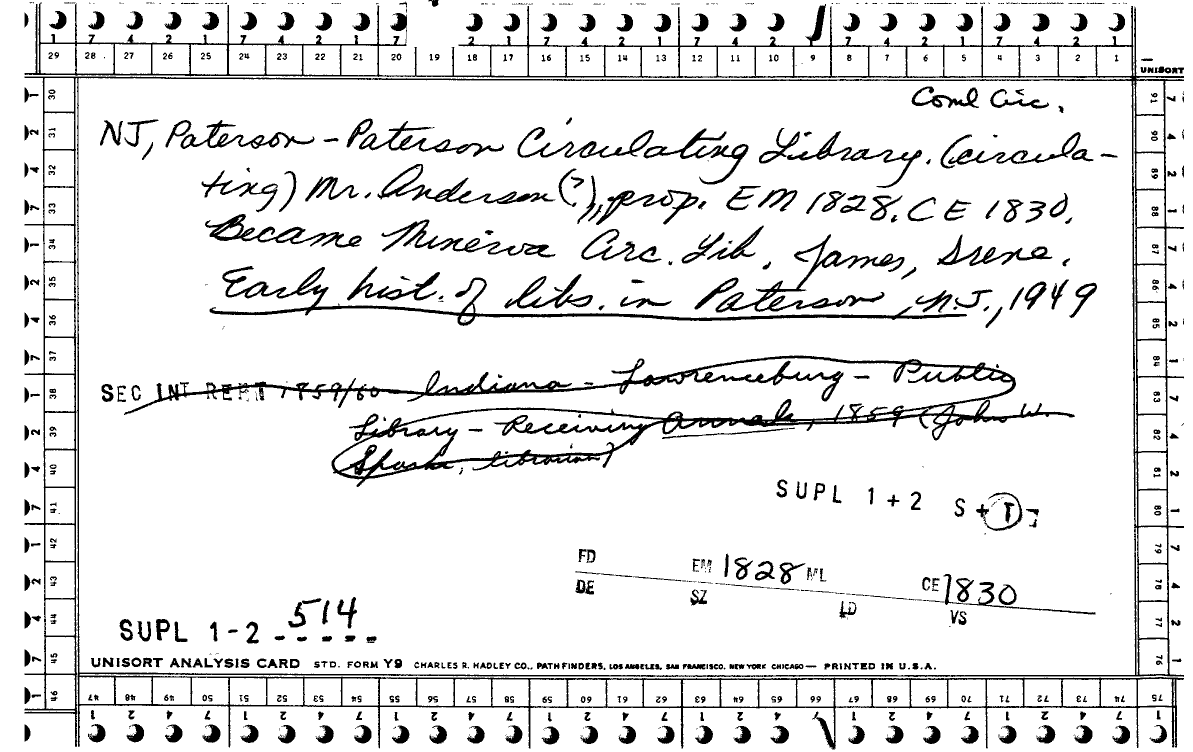 7 4 2 1 7 4 2 1 7 4 2 1 7 4 2 1 7 4 2 1 7 4 2 1
29 28 27 26 25 24 23 22 21 20 19 18 17 16 15 14 13 12 11 10 9 8 7 6 5 4 3 2 1
UNISORT
Coml Circ.
NJ, Paterson - Paterson Circulating Library. (circula-
ting) Mr. Anderson (?), prop. EM 1828. CE 1830.
Became Minerva Circ. Lib. James, Irene.
Early hist. of libs. in Paterson, N.J., 1949
SEC INT REPT 1859/60 - Indiana - Lawrenceburg - Public
Library - Receiving Annals, 1859 (John W.
librarian)
SUPL 1+2 S+T
FD EM 1828 ML CE 1830
DE SZ LD VS
SUPL 1-2 514
UNISORT ANALYSIS CARD STD. FORM Y9 CHARLES R. HADLEY CO., PATHFINDERS, LOS ANGELES, SAN FRANCISCO, NEW YORK CHICAGO — PRINTED IN U.S.A.
47 48 49 50 51 52 53 54 55 56 57 58 59 60 61 62 63 64 65 66 67 68 69 70 71 72 73 74 75